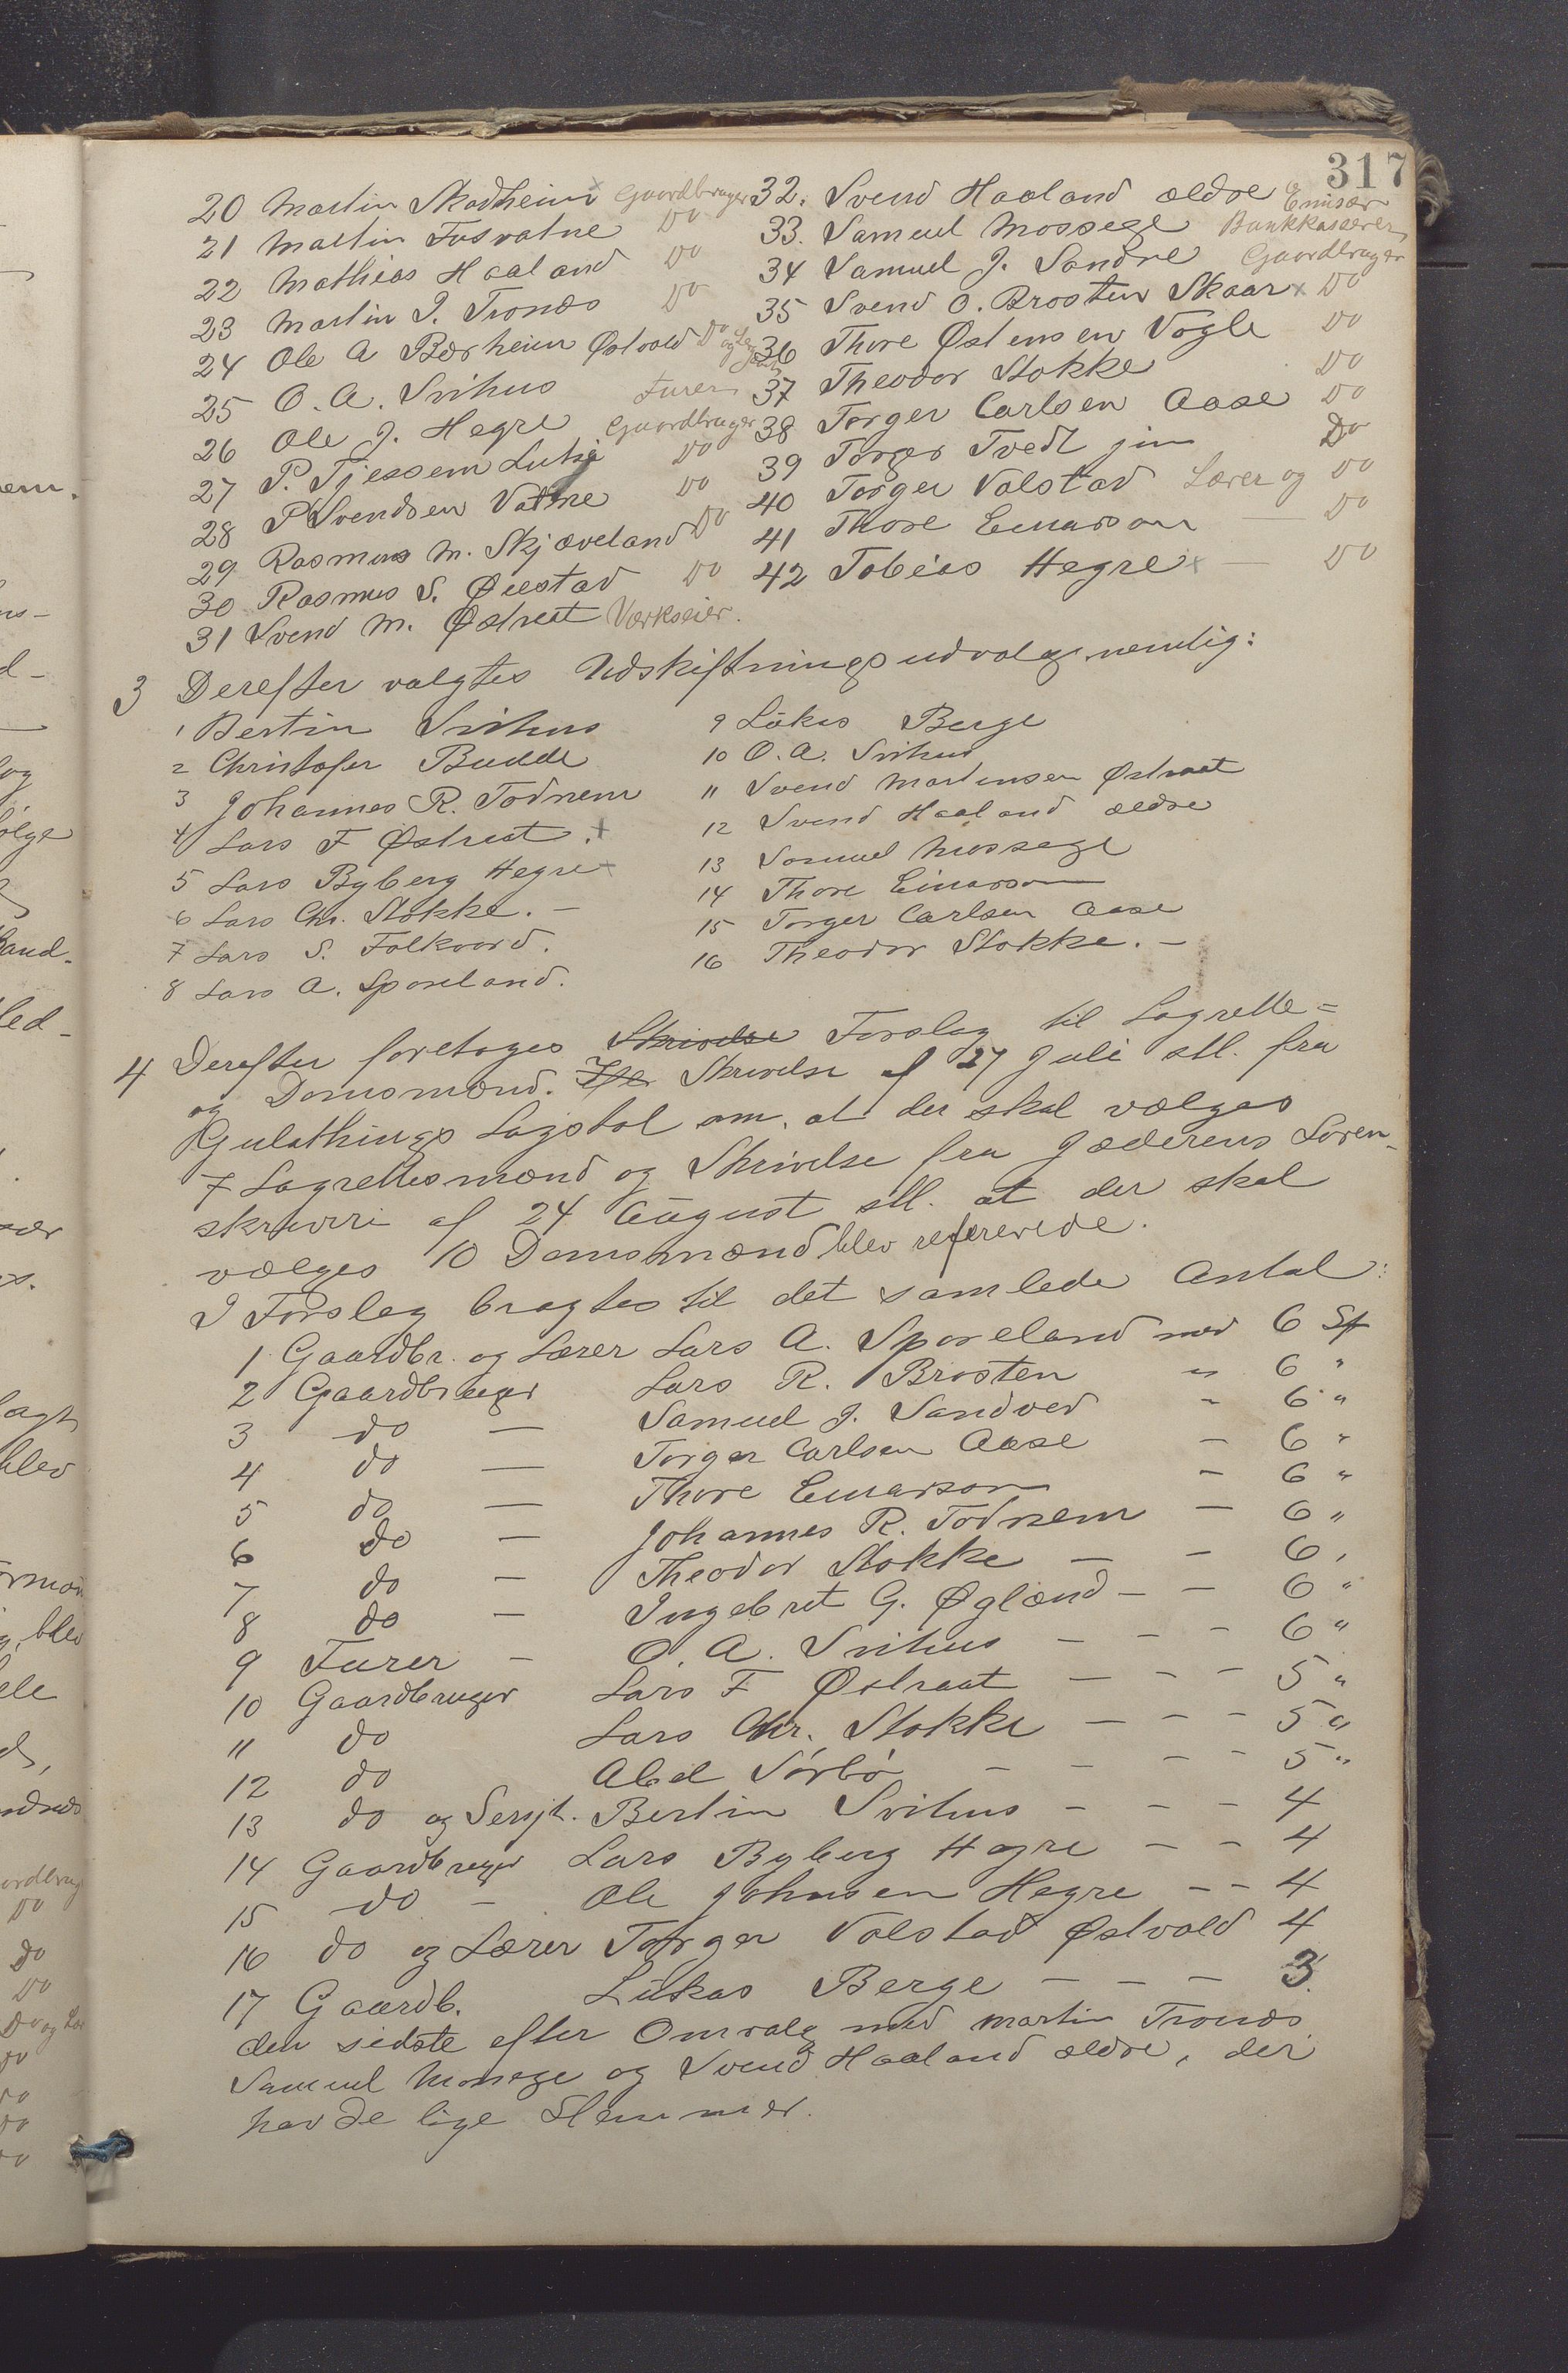 317
20 Martin Skadheim x Gaardbruger
21 Martin Fosvatne Do
22 Mathias Haaland Do
23 Martin I. Tronæs Do
24 Ole A Bærheim Østvold Do og
25 O. A. Svihus Furer
26 Ole J. Hegre Gaardbruger
27 P. Tjessem Lutsi Do
28 P Svendsen Vatne Do
29 Rasmus M. Skjæveland Do
30 Rasmus S. Øiestad Do
31 Svend M. Østraat Værkseier.
32. Svend Haaland ældre Emisær
33. Samuel Mossege Bankkasserer
34 Samuel J. Sandve Gaardbruger
35 Svend O. Brosten Skaar x Do
36 Thore Østensen Vogle Do
37 Theodor Stokke Do
38 Torger Carlsen Aase Do
39 Torger Tvedt jun Do
40 Torger Valstad Lærer og Do
41 Thore Einarson — Do
42 Tobias Hegre x — Do
3 Derefter valgtes Udskiftningsudvalg nemlig:
1 Bertin Svihus
2 Christofer Budde
3 Johannes R. Todnem
4 Lars F Østraat . x
5 Lars Byberg Hegre x
6 Lars Chr. Stokke. —
7 Lars S. Folkvord.
8 Lars A. Sporeland.
9 Lukas Berge
10 O. A. Svihus
11 Svend Martinsen Østraat
12 Svend Haaland ældre
13 Samuel Mossege
14 Thore Einarson
15 Torger Carlsen Aase
16 Theodor Stokke. —
4 Derefter foretoges Skrivelse Forslag til Lagrette=
og Domsmænd. Skrivelse af 27 Juli stl. fra
Gulathings Lagstol om, at der skal vælges
7 Lagrettesmænd og Skrivelse fra Jæderens Soren-
skriveri af 24 August stl. at der skal
vælges 10 Domsmænd blev refererede.
I Forslag bragtes til det samlede Antal:
1 Gaardbr. og Lærer Lars A. Sporeland med 6 St
2 Gaardbruger Lars R. Brosten " 6 "
3 do — Samuel J. Sandved - 6 "
4 do — Torger Carlsen Aase — 6 "
5 do — Thore Einarson - 6 "
6 do — Johannes R. Todnem — 6 "
7 do — Theodor Stokke — - 6 "
8 do — Ingebret G. Øglænd — — 6 "
9 Furer — O. A. Svihus — — - 6 "
10 Gaardbruger Lars F Østraat — — - 5 "
11 do Lars Chr. Stokke — — - 5 "
12 do Abel Sørbø — — - 5 "
13 do og Sersjt. Bertin Svihus - - - 4
14 Gaardbruger Lars Byberg Hegre — — 4
15 do - Ole Johnsen Hegre — — 4
16 do og Lærer Torger Valstad Østvold 4
17 Gaardb. Lukas Berge — — — 3.
den sidste efter Omvalg med Martin Tronæs
Samuel Mossege og Svend Haaland ældre, der
havde lige Stemmer.